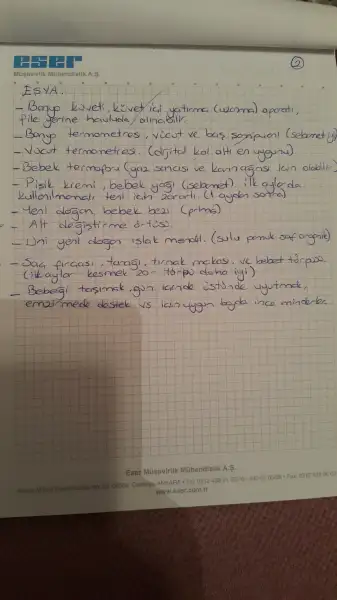 eser
Müşavirlik Mühendislik A.Ş.
2
EŞYA.
– Banyo küveti, küvet içi yatırma (uzanma) aparatı,
file yerine havluda alınabilir.
– Banyo termometresi, vücut ve baş şampuanı (sebamed iyi)
– Vücut termometresi. (dijital kol altı en uygunu)
– Bebek termoforu (gaz sancısı ve karın ağrısı için olabilir)
– Pişik kremi, bebek yağı (sebamet). ilk aylarda
kullanılmamalı teni için zararlı. (1 aydan sonra)
– Yeni doğan, bebek bezi (prima)
– Alt değiştirme örtüsü.
– Uni yeni doğan ıslak mendil. (sulu pamuk saf organik)
– Saç fırçası, tarağı, tırnak makası, ve bebek törpüsü.
(ilk aylar kesmek zor törpü daha iyi)
– Bebeği taşımak, gün içinde üstünde uyutmak,
emzirmede destek vs için uygun boyda ince minderler.
Eser Müşavirlik Mühendislik A.Ş.
www.eser.com.tr